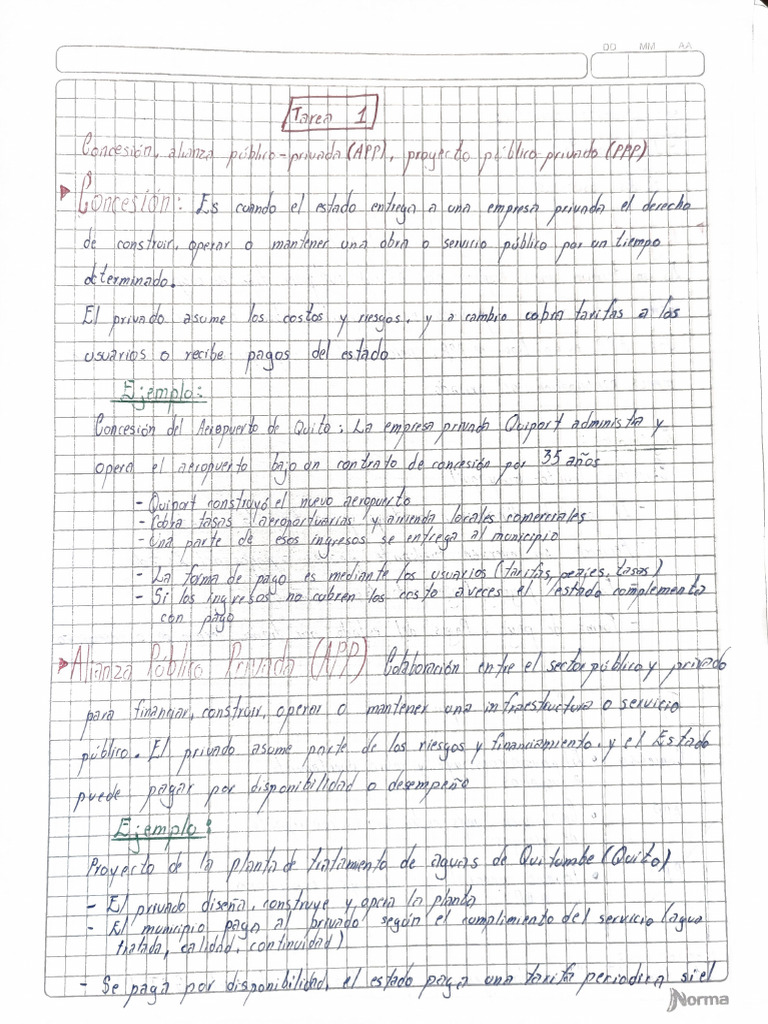 DD MM AA
Tarea 1
Concesión, alianza público-privada (APP), proyecto público privado (PPP)
Concesión: Es cuando el estado entrega a una empresa privada el derecho
de construir, operar o mantener una obra o servicio público por un tiempo
determinado.
El privado asume los costos y riesgos, y a cambio cobra tarifas a los
usuarios o recibe pagos del estado
Ejemplo:
Concesión del Aeropuerto de Quito: La empresa privada Quiport administra y
opera el aeropuerto bajo un contrato de concesión por 35 años
- Quiport construyó el nuevo aeropuerto
- Cobra tasas aeroportuarias y arrienda locales comerciales
- Una parte de esos ingresos se entrega al municipio
- La forma de pago es mediante los usuarios (tarifas, peajes, tasas)
- Si los ingresos no cubren los costo a veces el estado complementa
con pago
Alianza Público Privada (APP) Colaboración entre el sector público y privado
para financiar, construir, operar o mantener una infraestructura o servicio
público. El privado asume parte de los riesgos y financiamiento, y el Estado
puede pagar por disponibilidad o desempeño
Ejemplo:
Proyecto de la planta de tratamiento de aguas de Quitumbe (Quito)
- El privado diseña, construye y opera la planta
- El municipio paga al privado según el cumplimiento del servicio (agua
tratada, calidad, continuidad)
- Se paga por disponibilidad, el estado paga una tarifa periodica si el
Norma